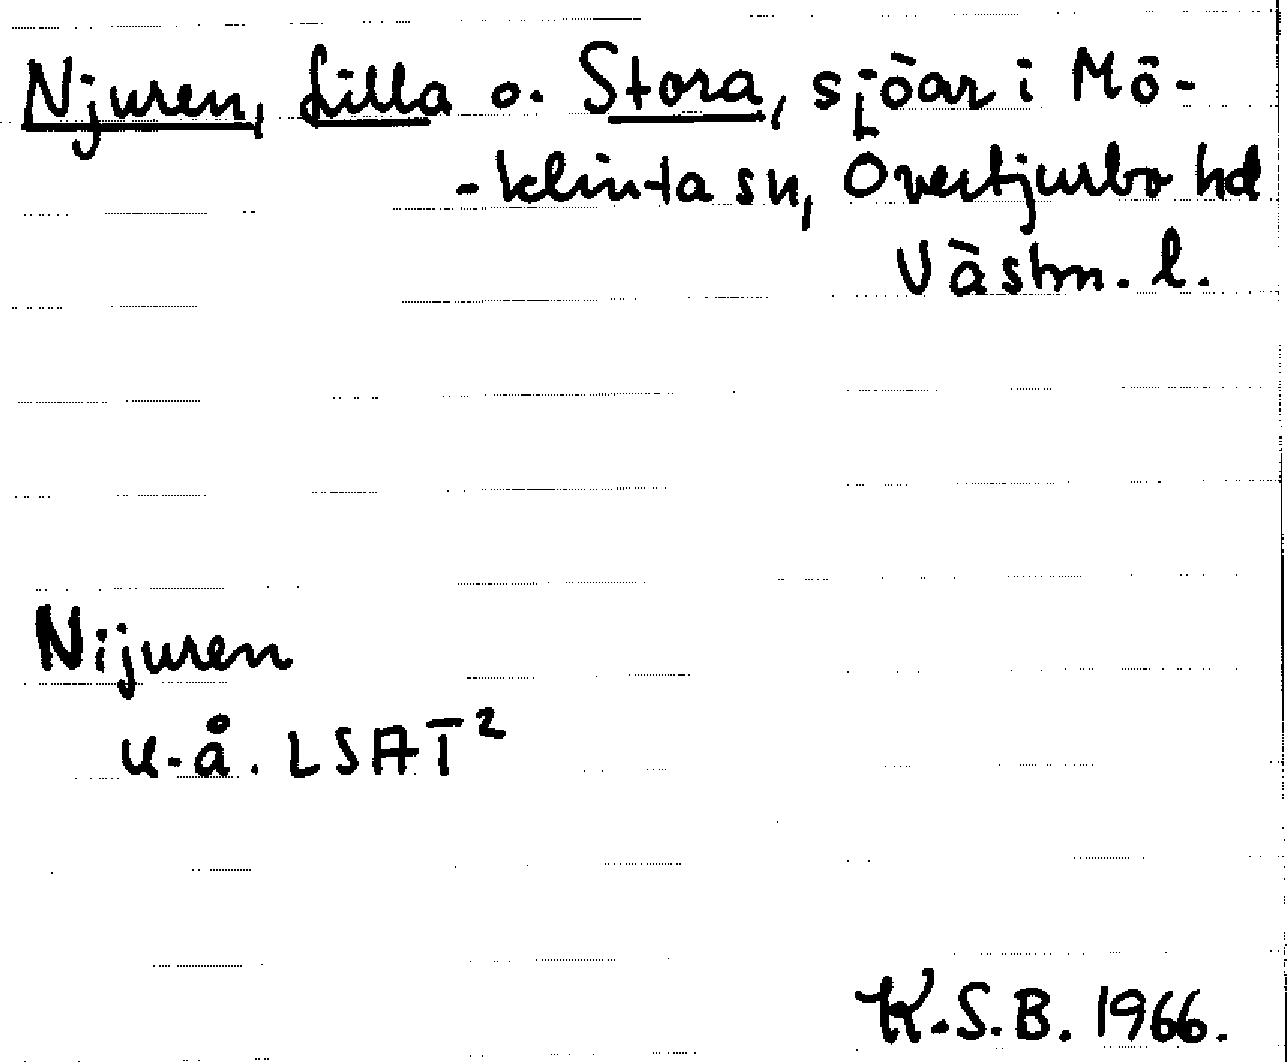 Njuren, Lilla o. Stora, sjöar i Mö-
-klinta sn, Övertjurbo hd
Västm. l.
Nijuren
u.å. LSAT²
K.S.B. 1966.